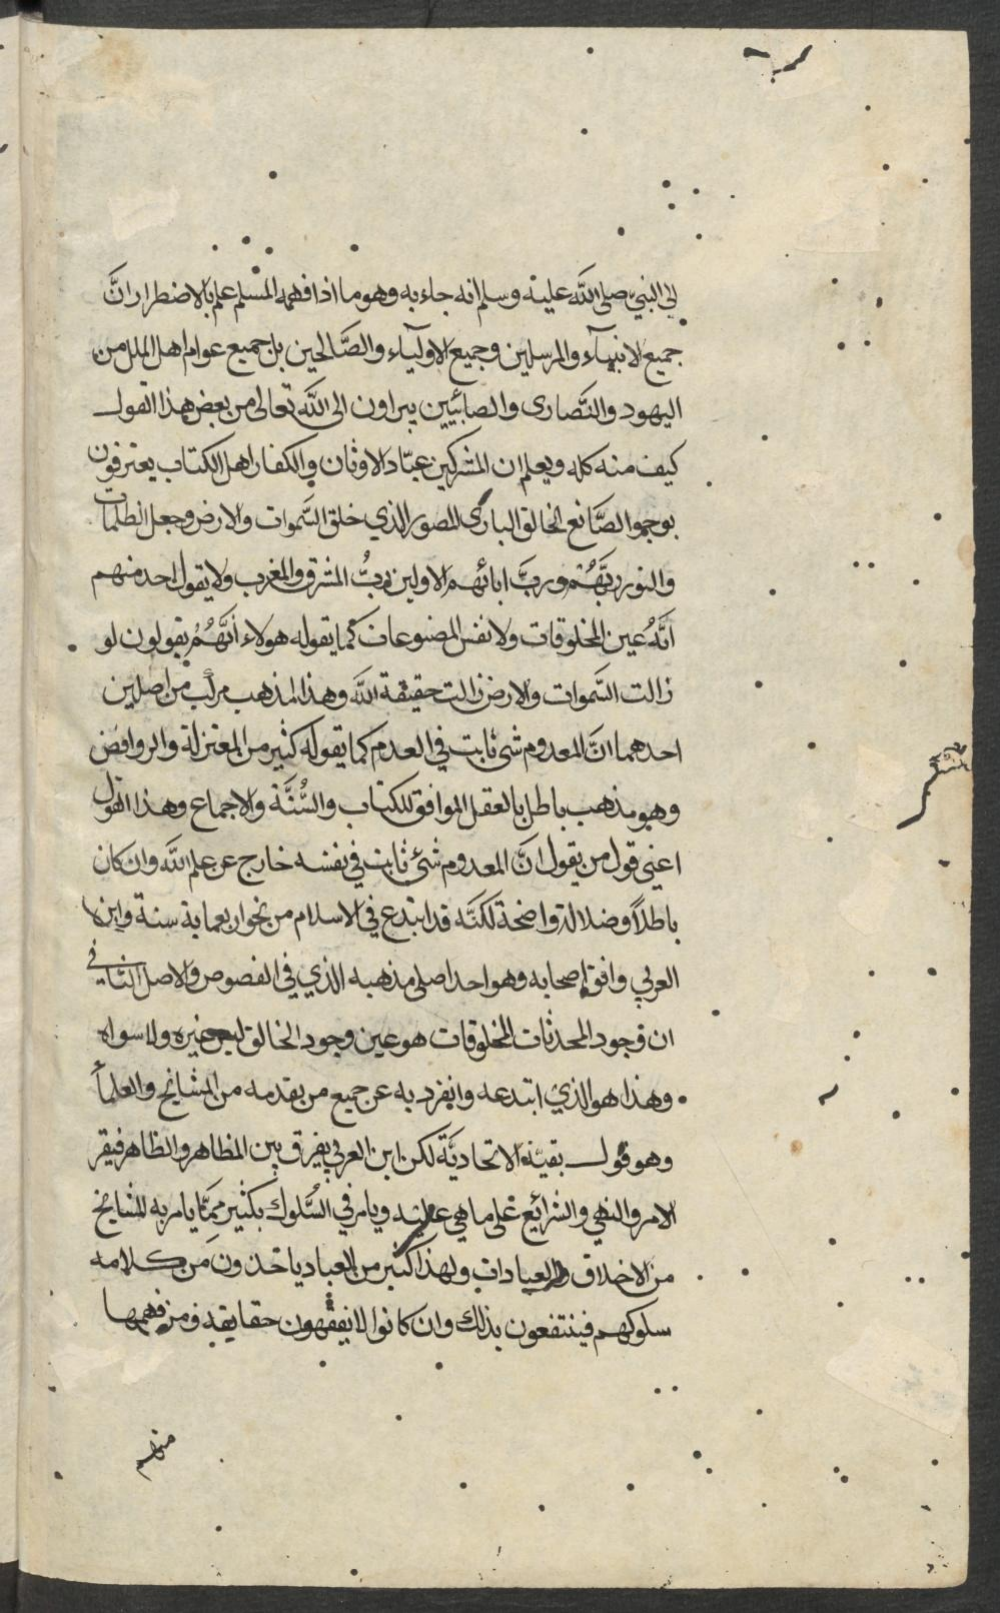 الى النبي صلى الله عليه وسلم انه جاء به وهو ما اذا فهمه المسلم علم بالاضطرار انَّ
جميع الانبيآء والمرسلين وجميع الاوليآء والصَّالحين بل جميع عوام اهل الملل من
اليهود والنَّصارى والصابئيين يبراون الى الله تعالى من بعض هذا القول
كيف منه كله ويعلم ان المشركين عبّاد الاوثان والكفار اهل الكتاب يعترفون
بوجود الصَّانع الخالق البارئ المصور الذي خلق السَّموات والارض وجعل الظلمات
والنور ربَّهُمْ ورَبَّ ابائهم الاولين ربُّ المشرق والمغرب ولا يقول احد منهم
انَّهُ عين المخلوقات ولا نفس المصنوعات كما يقوله هولاء أنَّهُمْ يقولون لو
زالت السَّموات والارض زالت حقيقة الله وهذا المذهب مركّب من اصلين
احدهما انَّ المعدوم شى ثابت في العدم كما يقوله كثير من المعتزلة والروافض
وهو مذهب باطل بالعقل الموافق للكتاب والسُّنَّة والاجماع وهذا القول
اعنى قول من يقول انَّ المعدوم شئ ثابت في نفسه خارج عن علم الله وان كان
باطلاً وضلالة واضحة لكنَّه قد ابتدع في الاسلام من نحو اربعماية سنة وابن
العربي وافق اصحابه وهو احد اصلى مذهبه الذي في الفصوص والاصل الثاني
ان وجود المحدثات المخلوقات هو عين وجود الخالق ليس غيره ولا سواه
وهذا هو الذي ابتدعه وانفرد به عن جميع من تقدمه من المشايخ والعلمأ
وهو قول بقية الاتحاديَّة لكن ابن العربي يفرق بين المظاهر والظاهر فيقر
الامر والنهي والشرائع على ما هي عليه ويامر في السُّلوك بكثير ممَّا يامر به المشايخ
من الاخلاق والعبادات ولهذا كثير من العباد ياخذون من كلامه
سلوكهم فينتفعون بذلك وان كانوا لا يفقهون حقايقه ومن فهمها
منهم